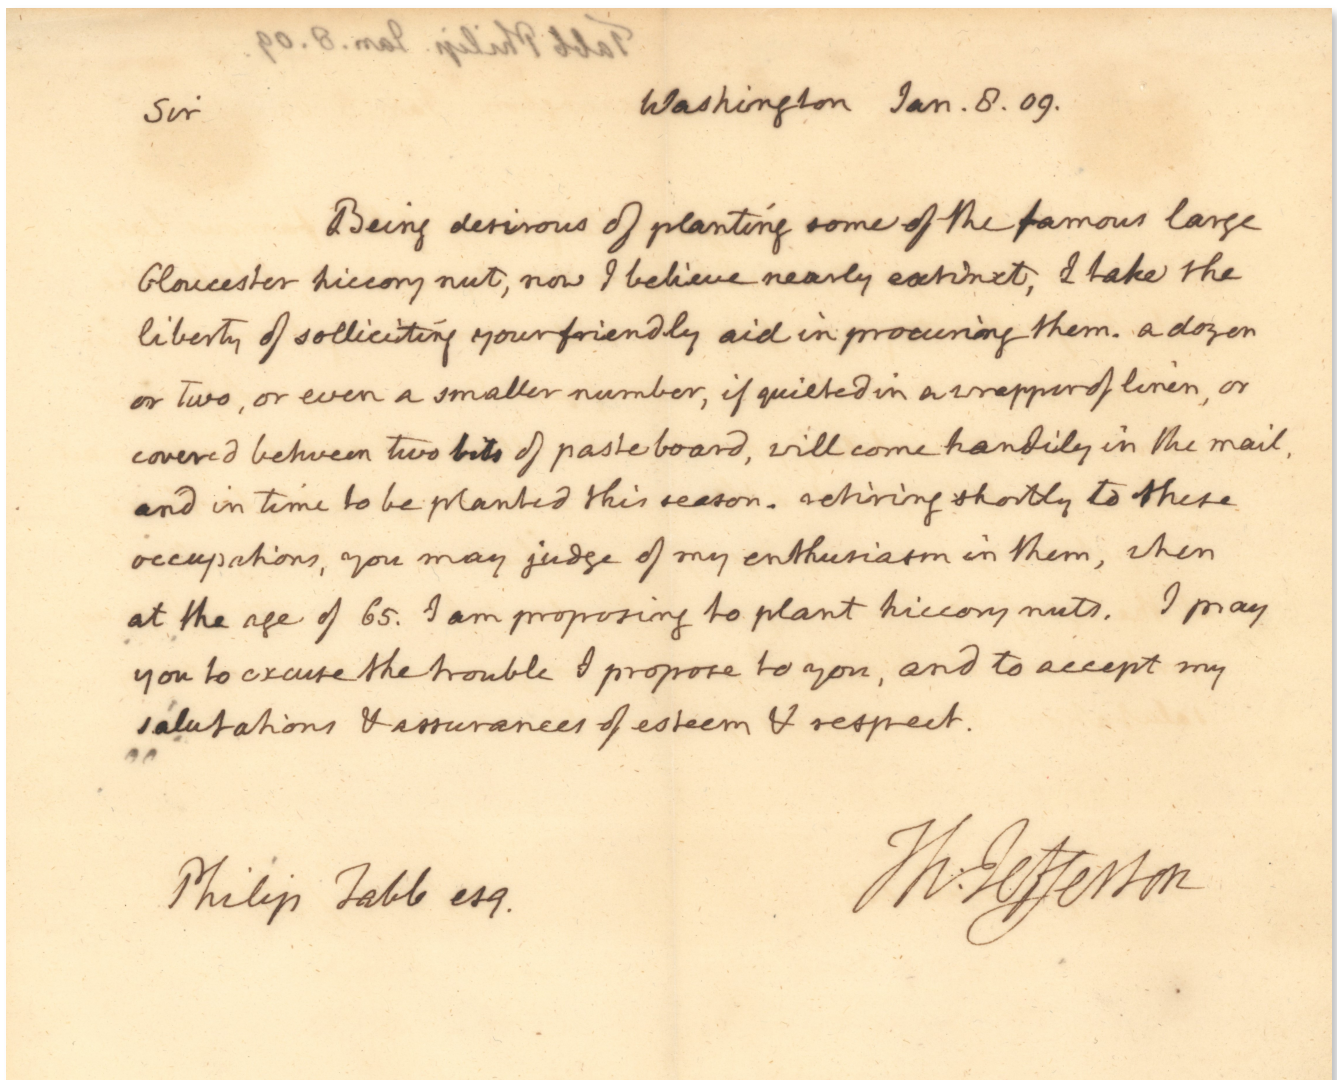 Tabb Philip Jan. 8. 09.
Sir Washington Jan. 8. 09.
Being desirous of planting some of the famous large
Gloucester hiccory nut, now I believe nearly extinct, I take the
liberty of solliciting your friendly aid in procuring them. a dozen
or two, or even a smaller number, if quilted in a wrapper of linen, or
covered between two bits of paste board, will come handily in the mail,
and in time to be planted this season. retiring shortly to these
occupations, you may judge of my enthusiasm in them, when
at the age of 65. I am proposing to plant hiccory nuts. I pray
you to excuse the trouble I propose to you, and to accept my
salutations & assurances of esteem & respect.
Th: Jefferson
Philip Tabb esq.